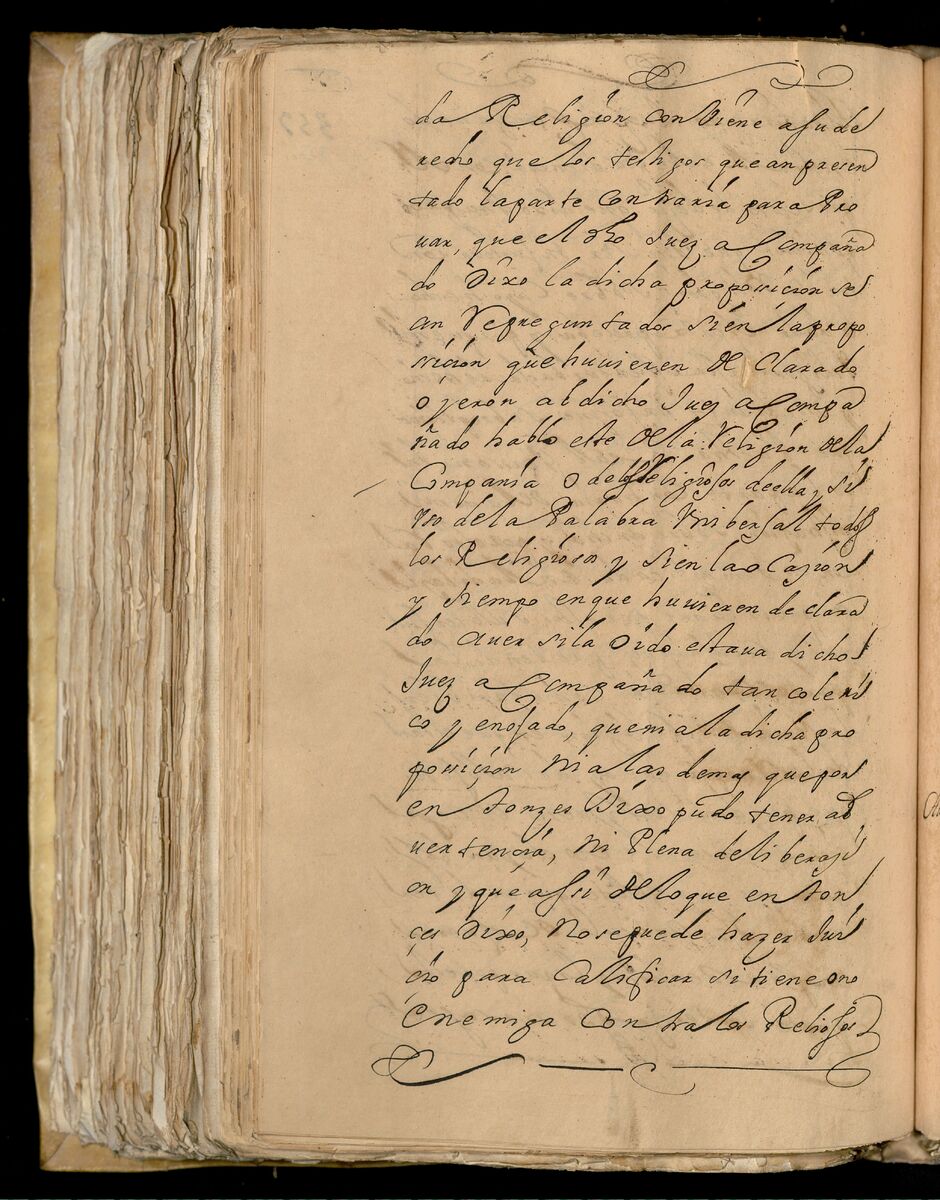 da Religion conViene asude
recho que los testigos que an presen
tado laparte Contraria para Pro
uar, que el dho Juez aCompaña
do Dixo la dicha proposicion se
an Repreguntados sien lapropo
sicion que huuieren De Clarado
oyeron al dicho Juez aCompa
ñado hablo este dela Religion dela
Compania o delos Religiosos deella, y si
Vso dela Palabra Vnibersal todos
los Religiosos y sien lao Casion
y tiempo enque huuieren de clara
do auer sila oido estaua dicho
Juez aCompañado tan coleri
co y enojado, que ni ala dicha pro
posicion Ni alas demas que por
entonzes Dixo pudo tener ad
uertencia, Ni Plena deliberasi
on y que assi Deloque enton
ces Dixo, No sepuede hazer Jui
cio para Calificar si tiene o no
Enemiga Contra los Reliosos